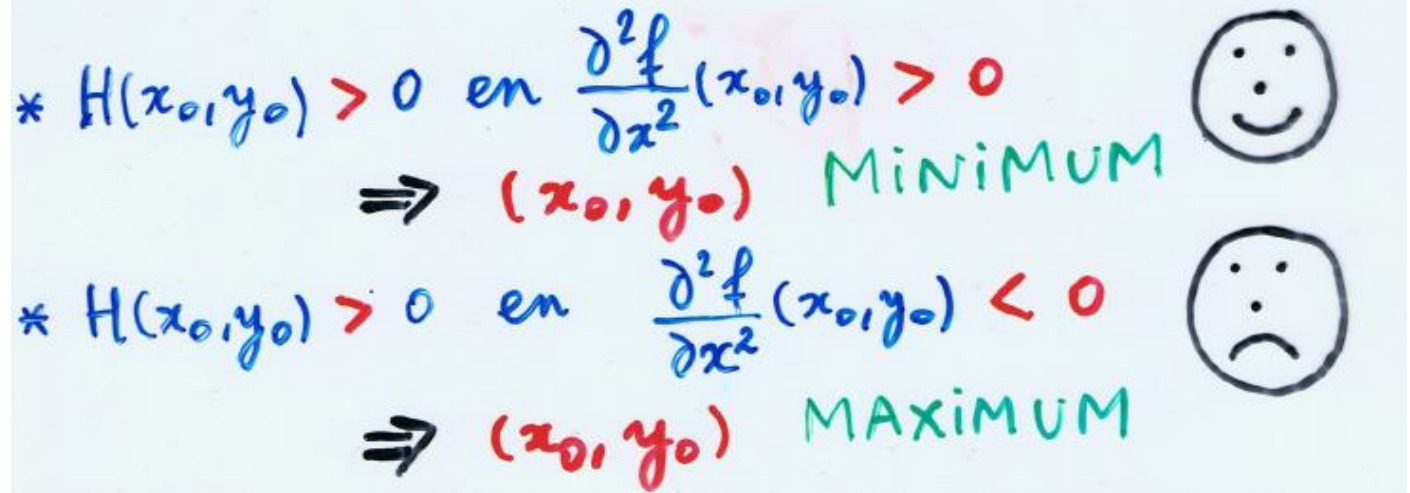 * H(x₀,y₀) > 0 en ∂²f/∂x² (x₀,y₀) > 0
⇒ (x₀,y₀) MiNiMUM
* H(x₀,y₀) > 0 en ∂²f/∂x² (x₀,y₀) < 0
⇒ (x₀,y₀) MAXiMUM